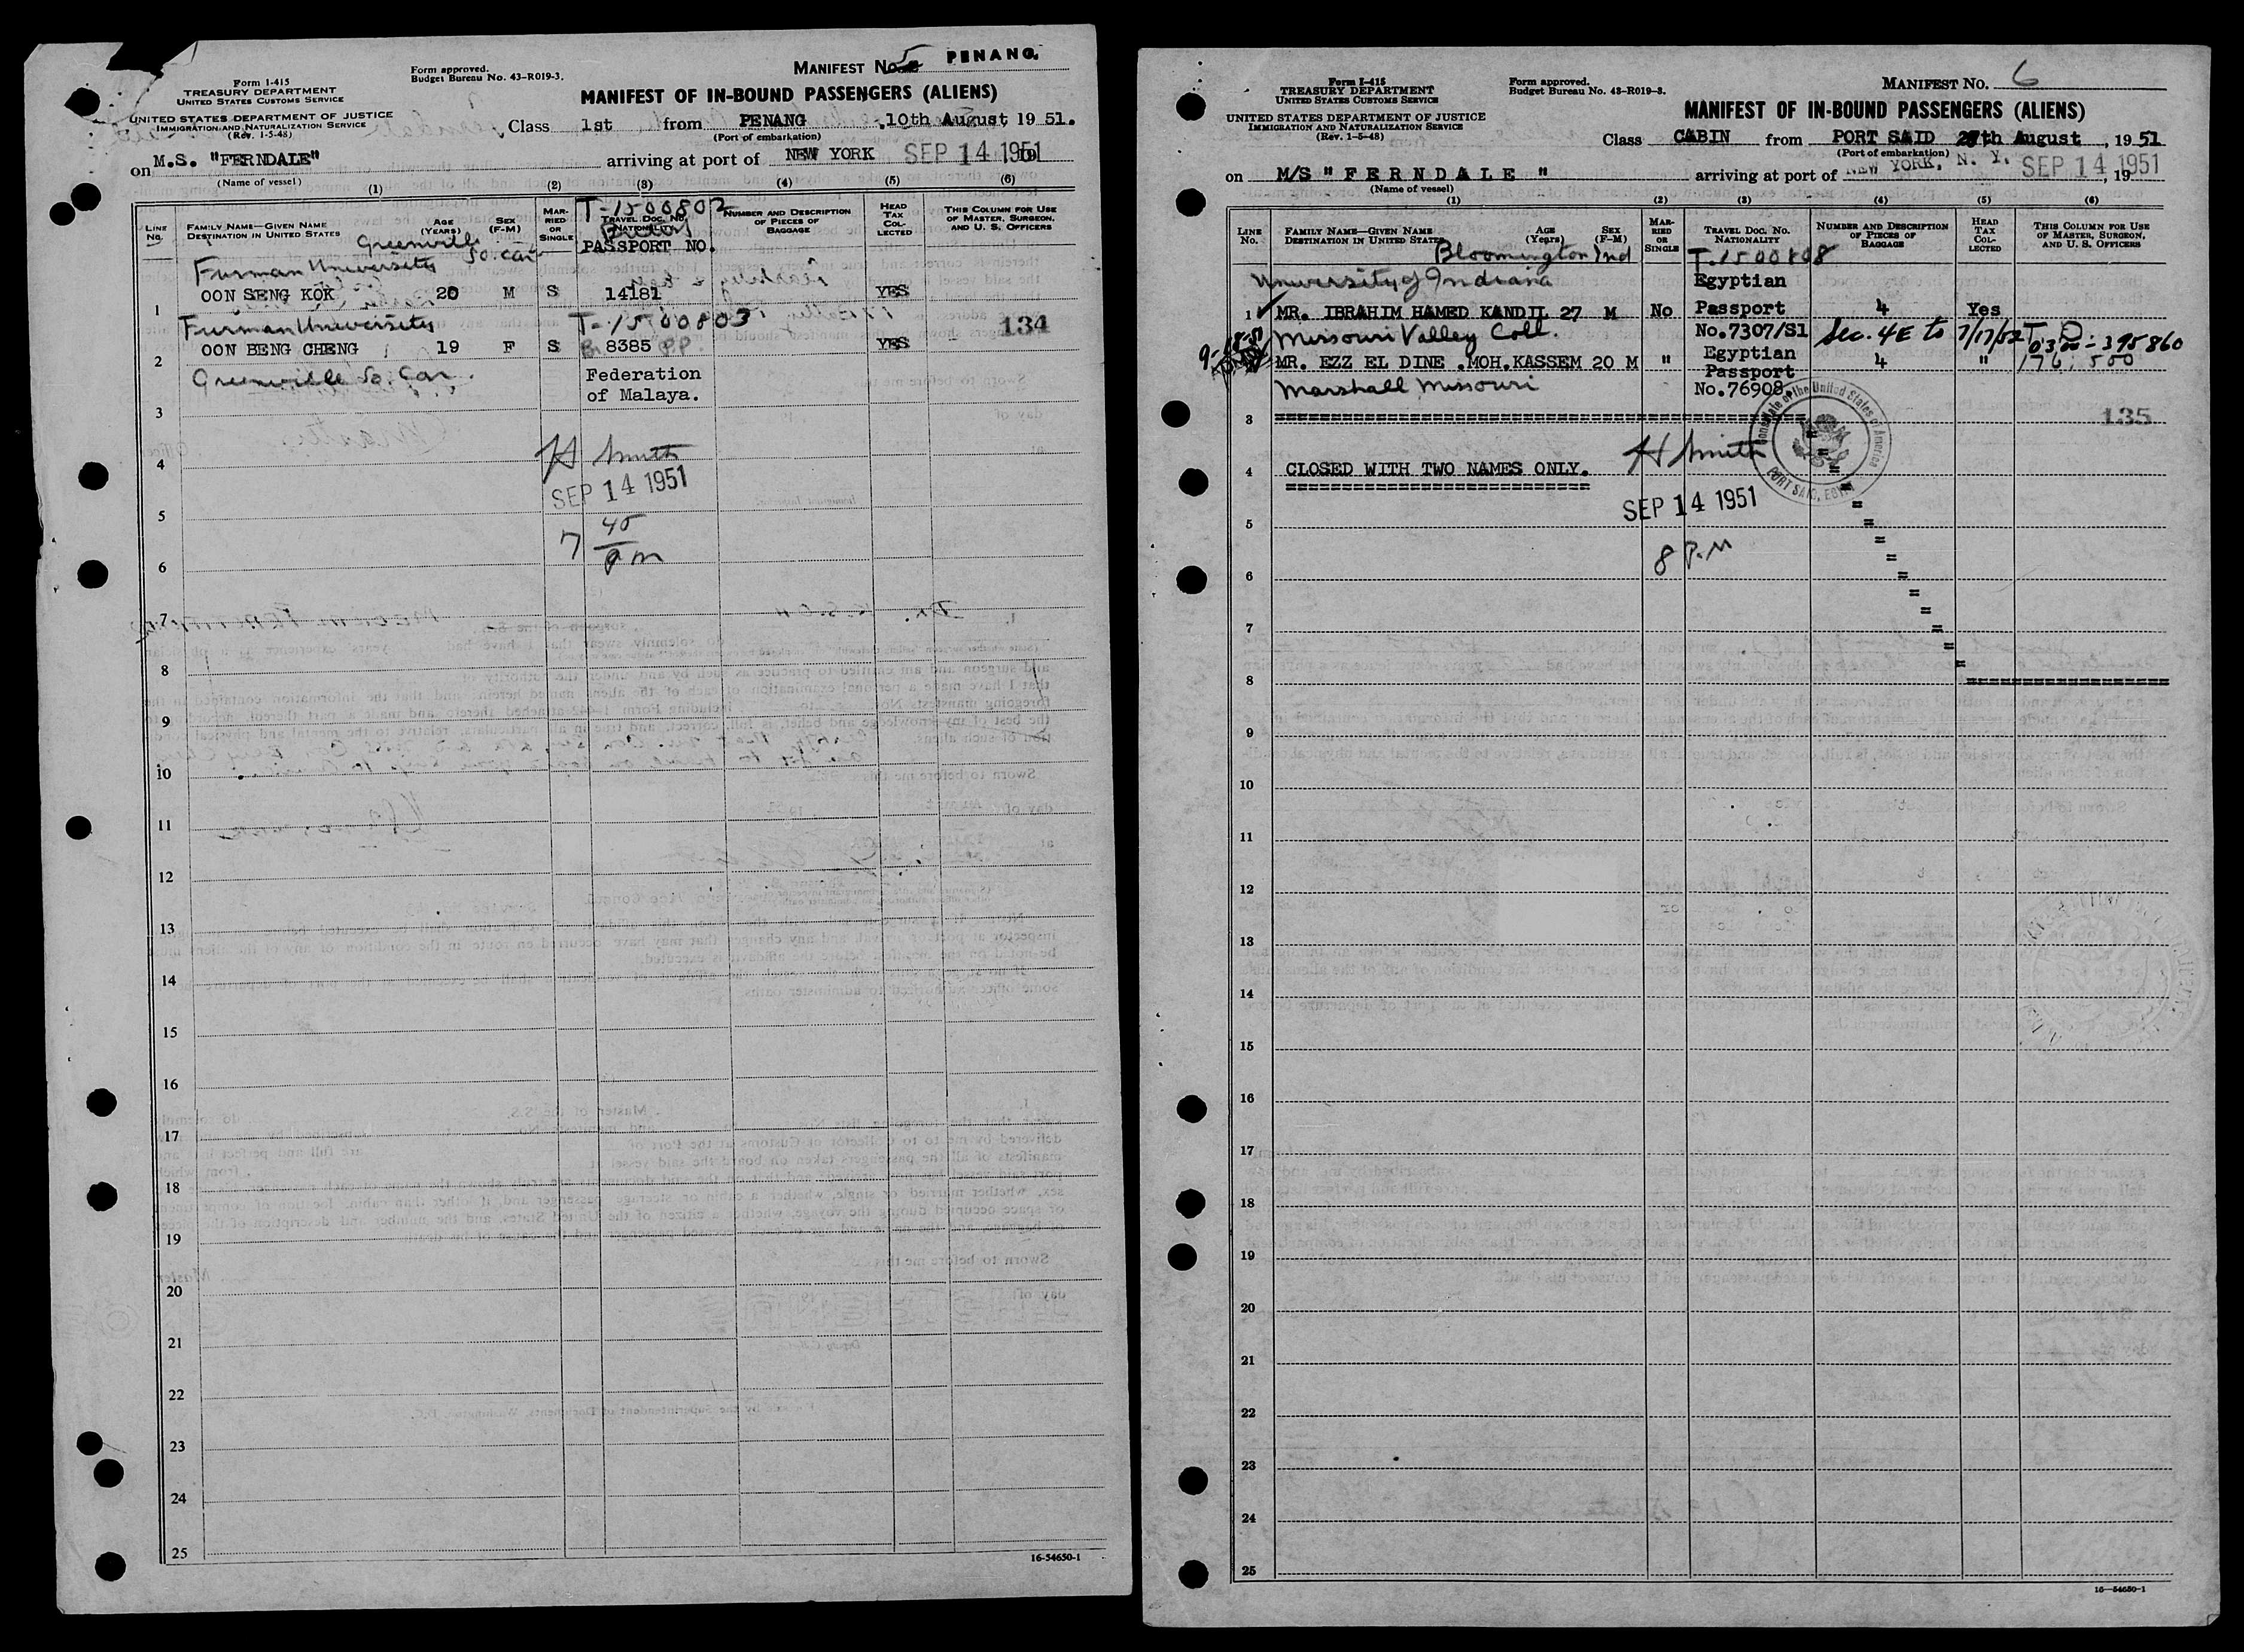 Form 1-415
TREASURY DEPARTMENT
UNITED STATES CUSTOMS SERVICE
UNITED STATES DEPARTMENT OF JUSTICE
IMMIGRATION AND NATURALIZATION SERVICE
(Rev. 1-5-48)
Form approved.
Budget Bureau No. 43-R019-3.
MANIFEST No. 5 PENANG.
MANIFEST OF IN-BOUND PASSENGERS (ALIENS)
Class 1st from PENANG, 10th August, 1951.
(Port of embarkation)
on M.S. "FERNDALE" arriving at port of NEW YORK SEP 14 1951
(Name of vessel)
(1) (2) (3) (4) (5) (6)
LINE No. FAMILY NAME—GIVEN NAME DESTINATION IN UNITED STATES AGE (YEARS) SEX (F-M) MARRIED OR SINGLE TRAVEL DOC. NO. NATIONALITY NUMBER AND DESCRIPTION OF PIECES OF BAGGAGE HEAD TAX COLLECTED THIS COLUMN FOR USE OF MASTER, SURGEON, AND U. S. OFFICERS
T-1500802
PASSPORT NO.
Greenville So. Car
Furman University
1 OON SENG KOK 20 M S 14181 YES
Furman University T-1500803 134
2 OON BENG CHENG 19 F S 8385 P.P. YES
Greenville So. Car.
Federation
of Malaya.
3
4
H Smith
SEP 14 1951
5
7 45
pm
6
7
8
9
10
11
12
13
14
15
16
17
18
19
20
21
22
23
24
25
16-54650-1
Form I-415
TREASURY DEPARTMENT
UNITED STATES CUSTOMS SERVICE
UNITED STATES DEPARTMENT OF JUSTICE
IMMIGRATION AND NATURALIZATION SERVICE
(Rev. 1-5-48)
Form approved.
Budget Bureau No. 43-R019-3.
MANIFEST No. 6
MANIFEST OF IN-BOUND PASSENGERS (ALIENS)
Class CABIN from PORT SAID 27th August, 1951
(Port of embarkation)
on M/S " F E R N D A L E " arriving at port of NEW YORK, N. Y. SEP 14 1951, 19
(Name of vessel)
(1) (2) (3) (4) (5) (6)
LINE No. FAMILY NAME—GIVEN NAME DESTINATION IN UNITED STATES AGE (Years) SEX (F-M) MARRIED OR SINGLE TRAVEL DOC. NO. NATIONALITY NUMBER AND DESCRIPTION OF PIECES OF BAGGAGE HEAD TAX COLLECTED THIS COLUMN FOR USE OF MASTER, SURGEON, AND U. S. OFFICERS
Bloomington Ind T.1500808
University of Indiana Egyptian
1 MR. IBRAHIM HAMED KANDIL 27 M No Passport 4 Yes
Missouri Valley Coll. No.7307/S1 Sec. 4E to 7/17/52
2 MR. EZZ EL DINE .MOH.KASSEM 20 M " Egyptian 4 " 176, 500
Passport
Marshall Missouri No.76908
3 135
Consulate of the United States of America
PORT SAID, EGYPT
4 CLOSED WITH TWO NAMES ONLY.
H Smith
SEP 14 1951
5
8 P.M
6
7
8
9
10
11
12
13
14
15
16
17
18
19
20
21
22
23
24
25
16-54650-1